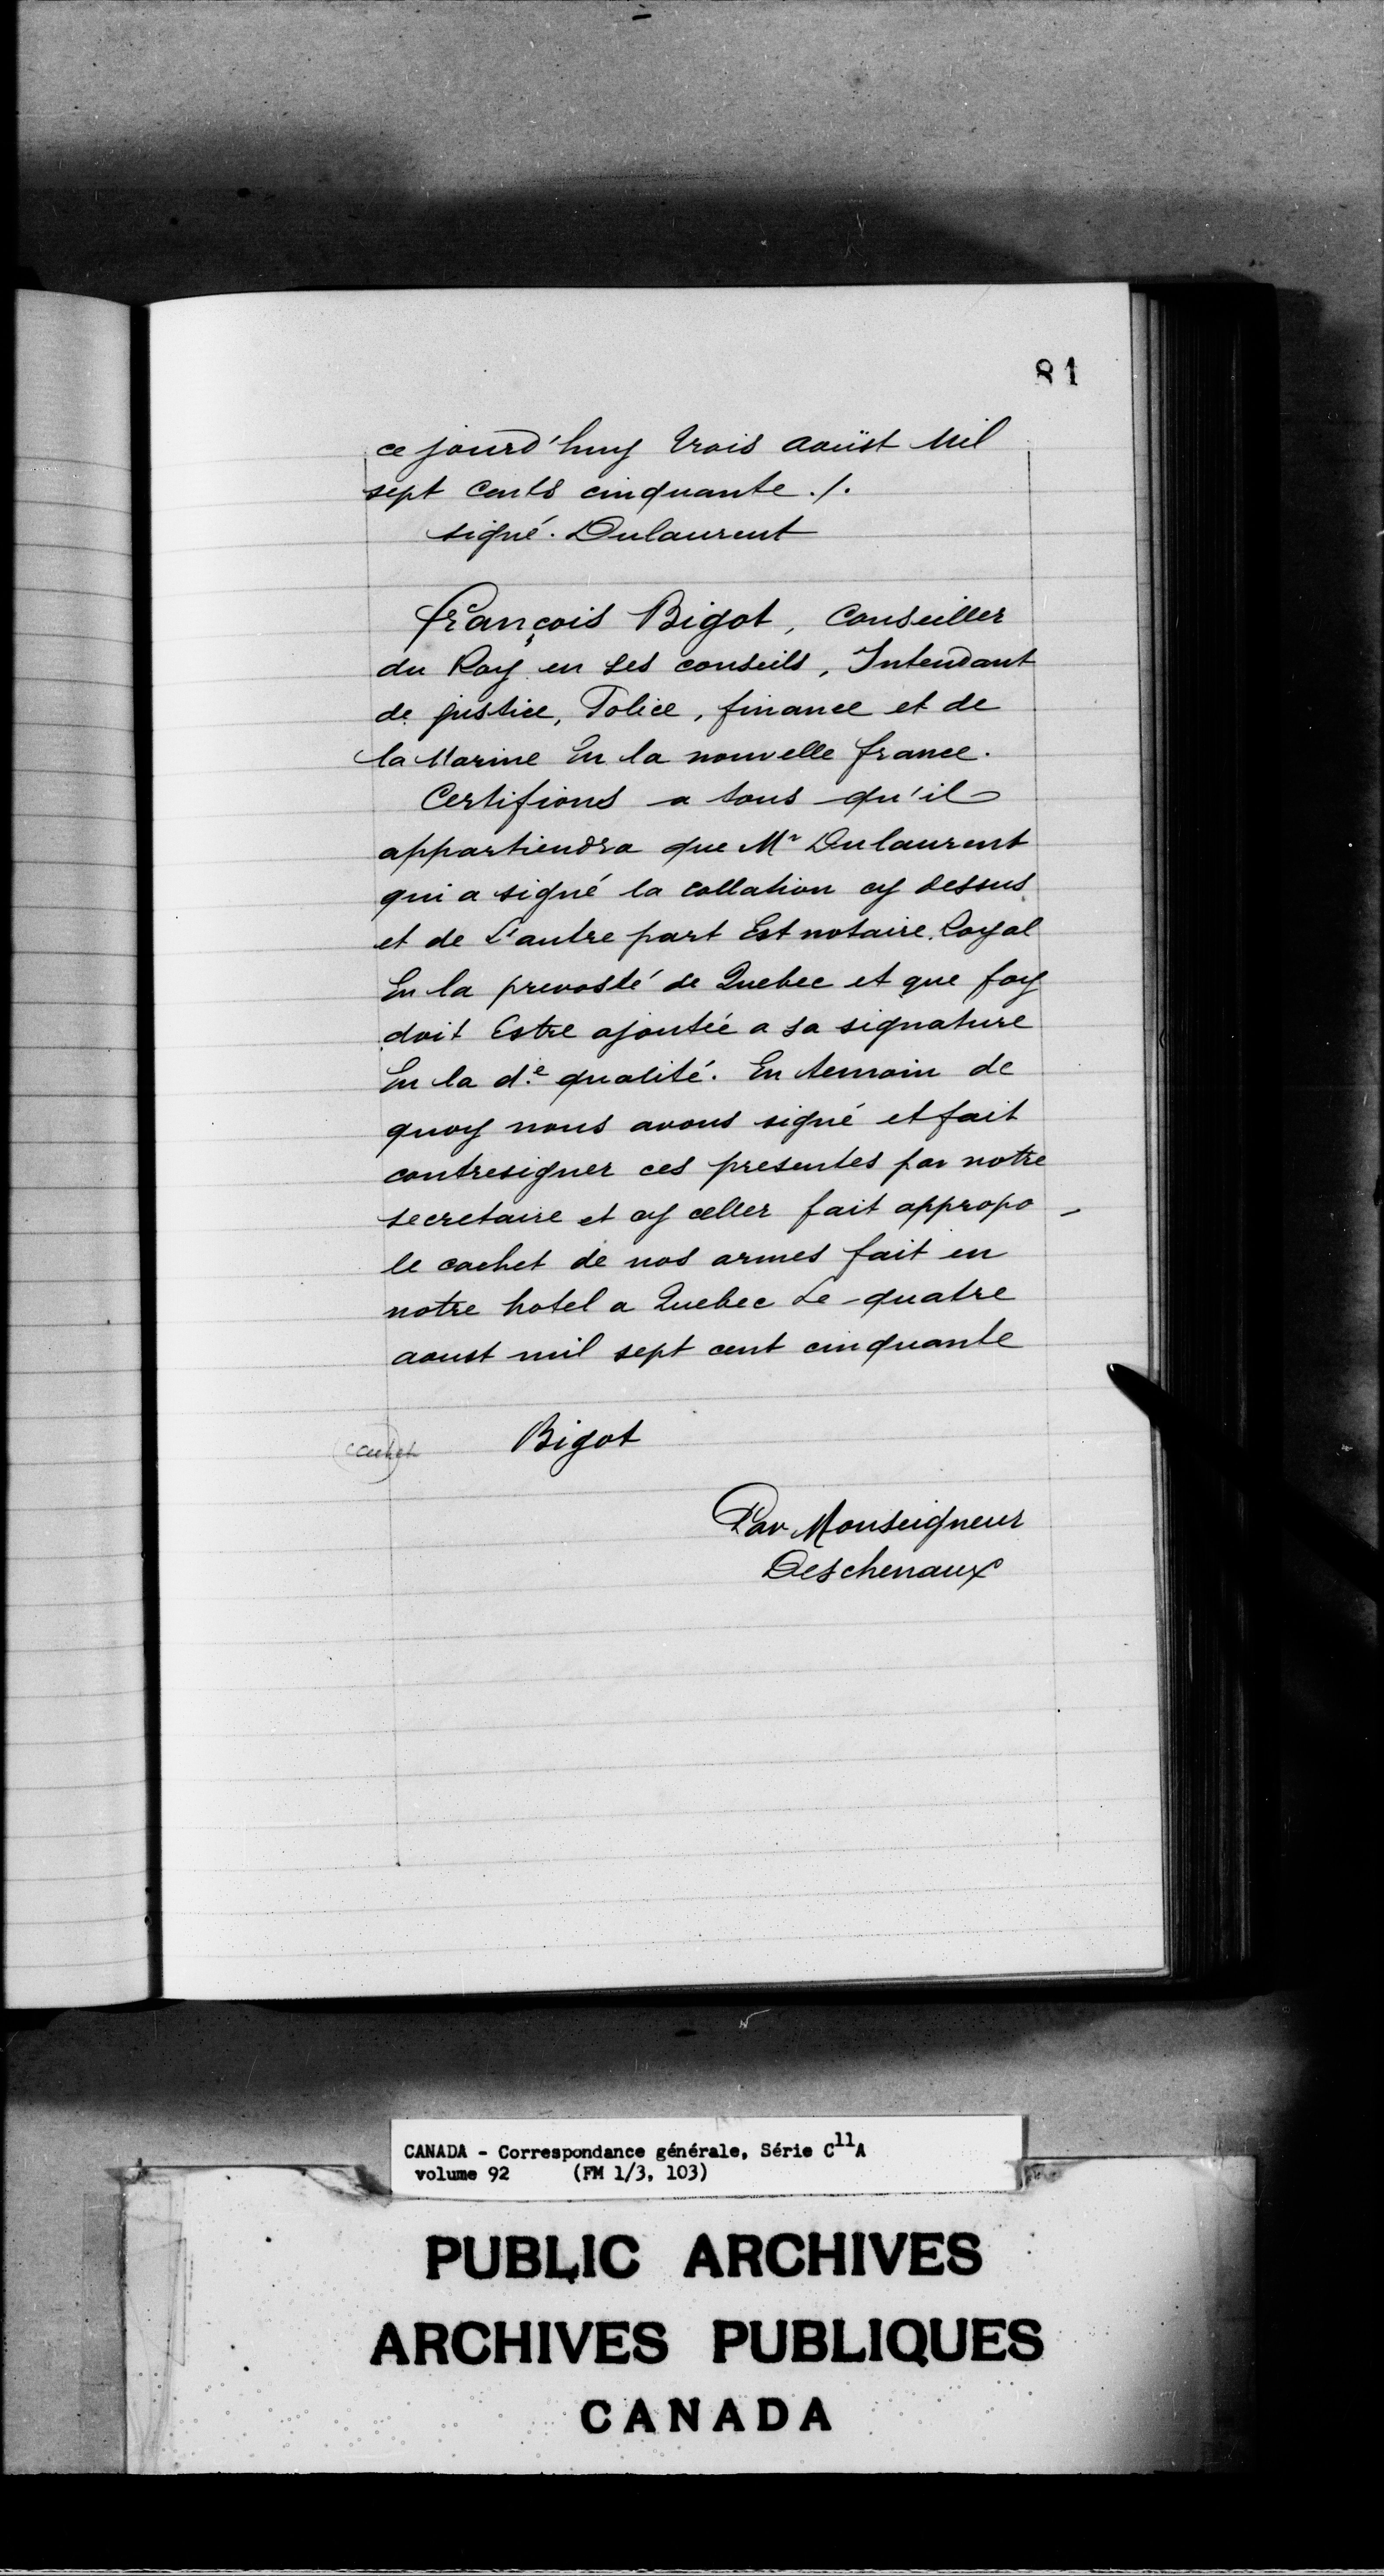 81
ce jourd'huy trois aoüst Mil
sept cents cinquante ./.
signé. Dulaurent
françois Bigot, Conseiller
du Roy en ses conseils, Intendant
de justice, Police, finance et de
la Marine En la nouvelle france.
Certifions a tous qu'il
appartiendra que Mr Dulaurent
qui a signé la collation cy dessus
et de L'autre part Est notaire Royal
En la prevosté de Quebec et que foy
doit Estre ajoutée a sa signature
En la d.e qualité. En temoin de
quoy nous avons signé et fait
contresigner ces presentes par notre
secretaire et cy celler fait appropo -
le cachet de nos armes fait en
notre hotel a Quebec Le quatre
aoust mil sept cent cinquante
(cachet) Bigot
Par Monseigneur
Deschenaux
CANADA - Correspondance générale, Série C11A
volume 92 (FM 1/3, 103)
PUBLIC ARCHIVES
ARCHIVES PUBLIQUES
CANADA